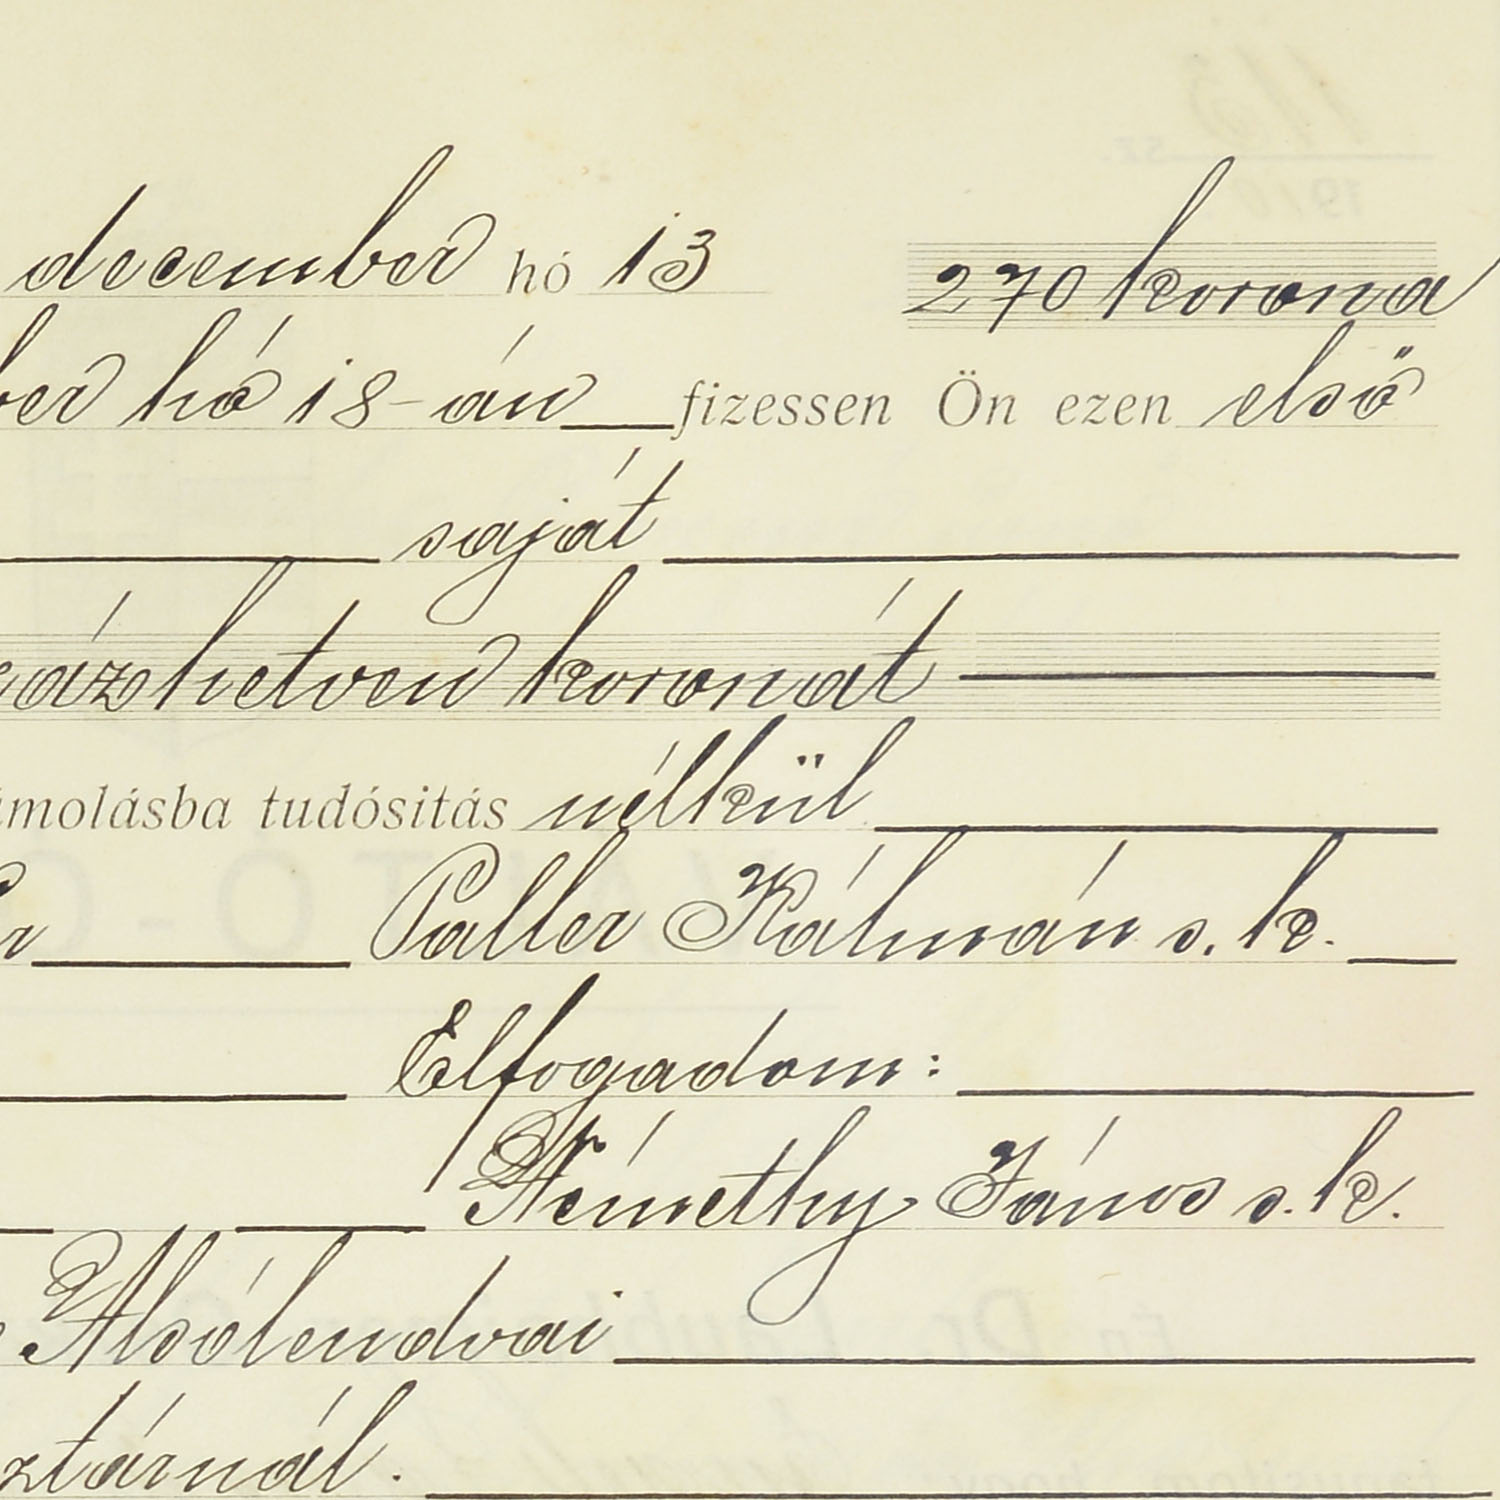 december hó 13 270 korona
ber hó 18-án fizessen Ön ezen első
saját
százhetven koronát
ámolásba tudósitás nélkül
Paller Kálmán s. k.
Elfogadom:
Némethy János s. k.
Alsólendvai
ztárnál.